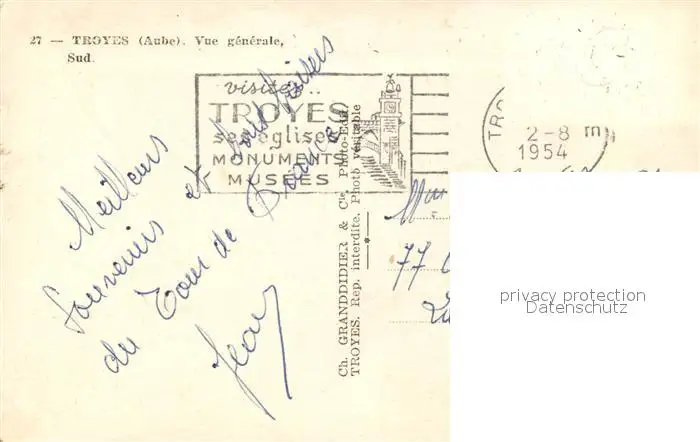 27 — TROYES (Aube). Vue générale,
Sud.
visitez..
TROYES
ses églises
MONUMENTS
MUSÉES
TRO
2-8
1954
Meilleurs
Souvenirs et bons baisers
du Tour de France
Jean
Ch. GRANDDIDIER & Cie, Photo-Edit.
TROYES. Rep. interdite. Photo véritable
77
privacy protection
Datenschutz